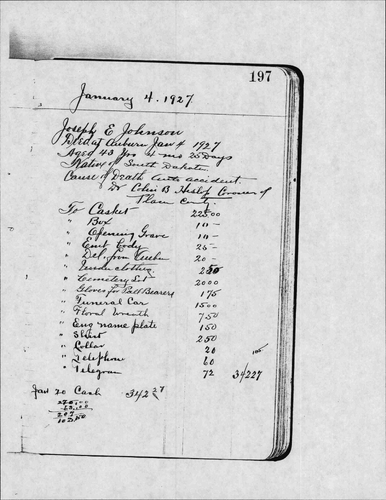 197
January 4. 1927
Joseph E Johnson
Died at Auburn Jan 4 1927
Aged 43 yrs 4 ms 25 Days
Native of South Dakota
Cause of Death Auto accident
Dr Colin B Coroner of
Placer County
To Casket 225.00
" Box 10 -
" Opening Grave 10 -
" Emb Body 25 -
" Del. from Auburn 20 -
" Underclothing 250
" Cemetery Lot 2000
" Gloves for Pall Bearers 175
" Funeral Car 1500
" Floral Wreath 750
" Eng name plate 150
" Shirt 250
" Collar 20
" Telephone 60
" Telegram 72 34227
Jan 20 Cash 342 27